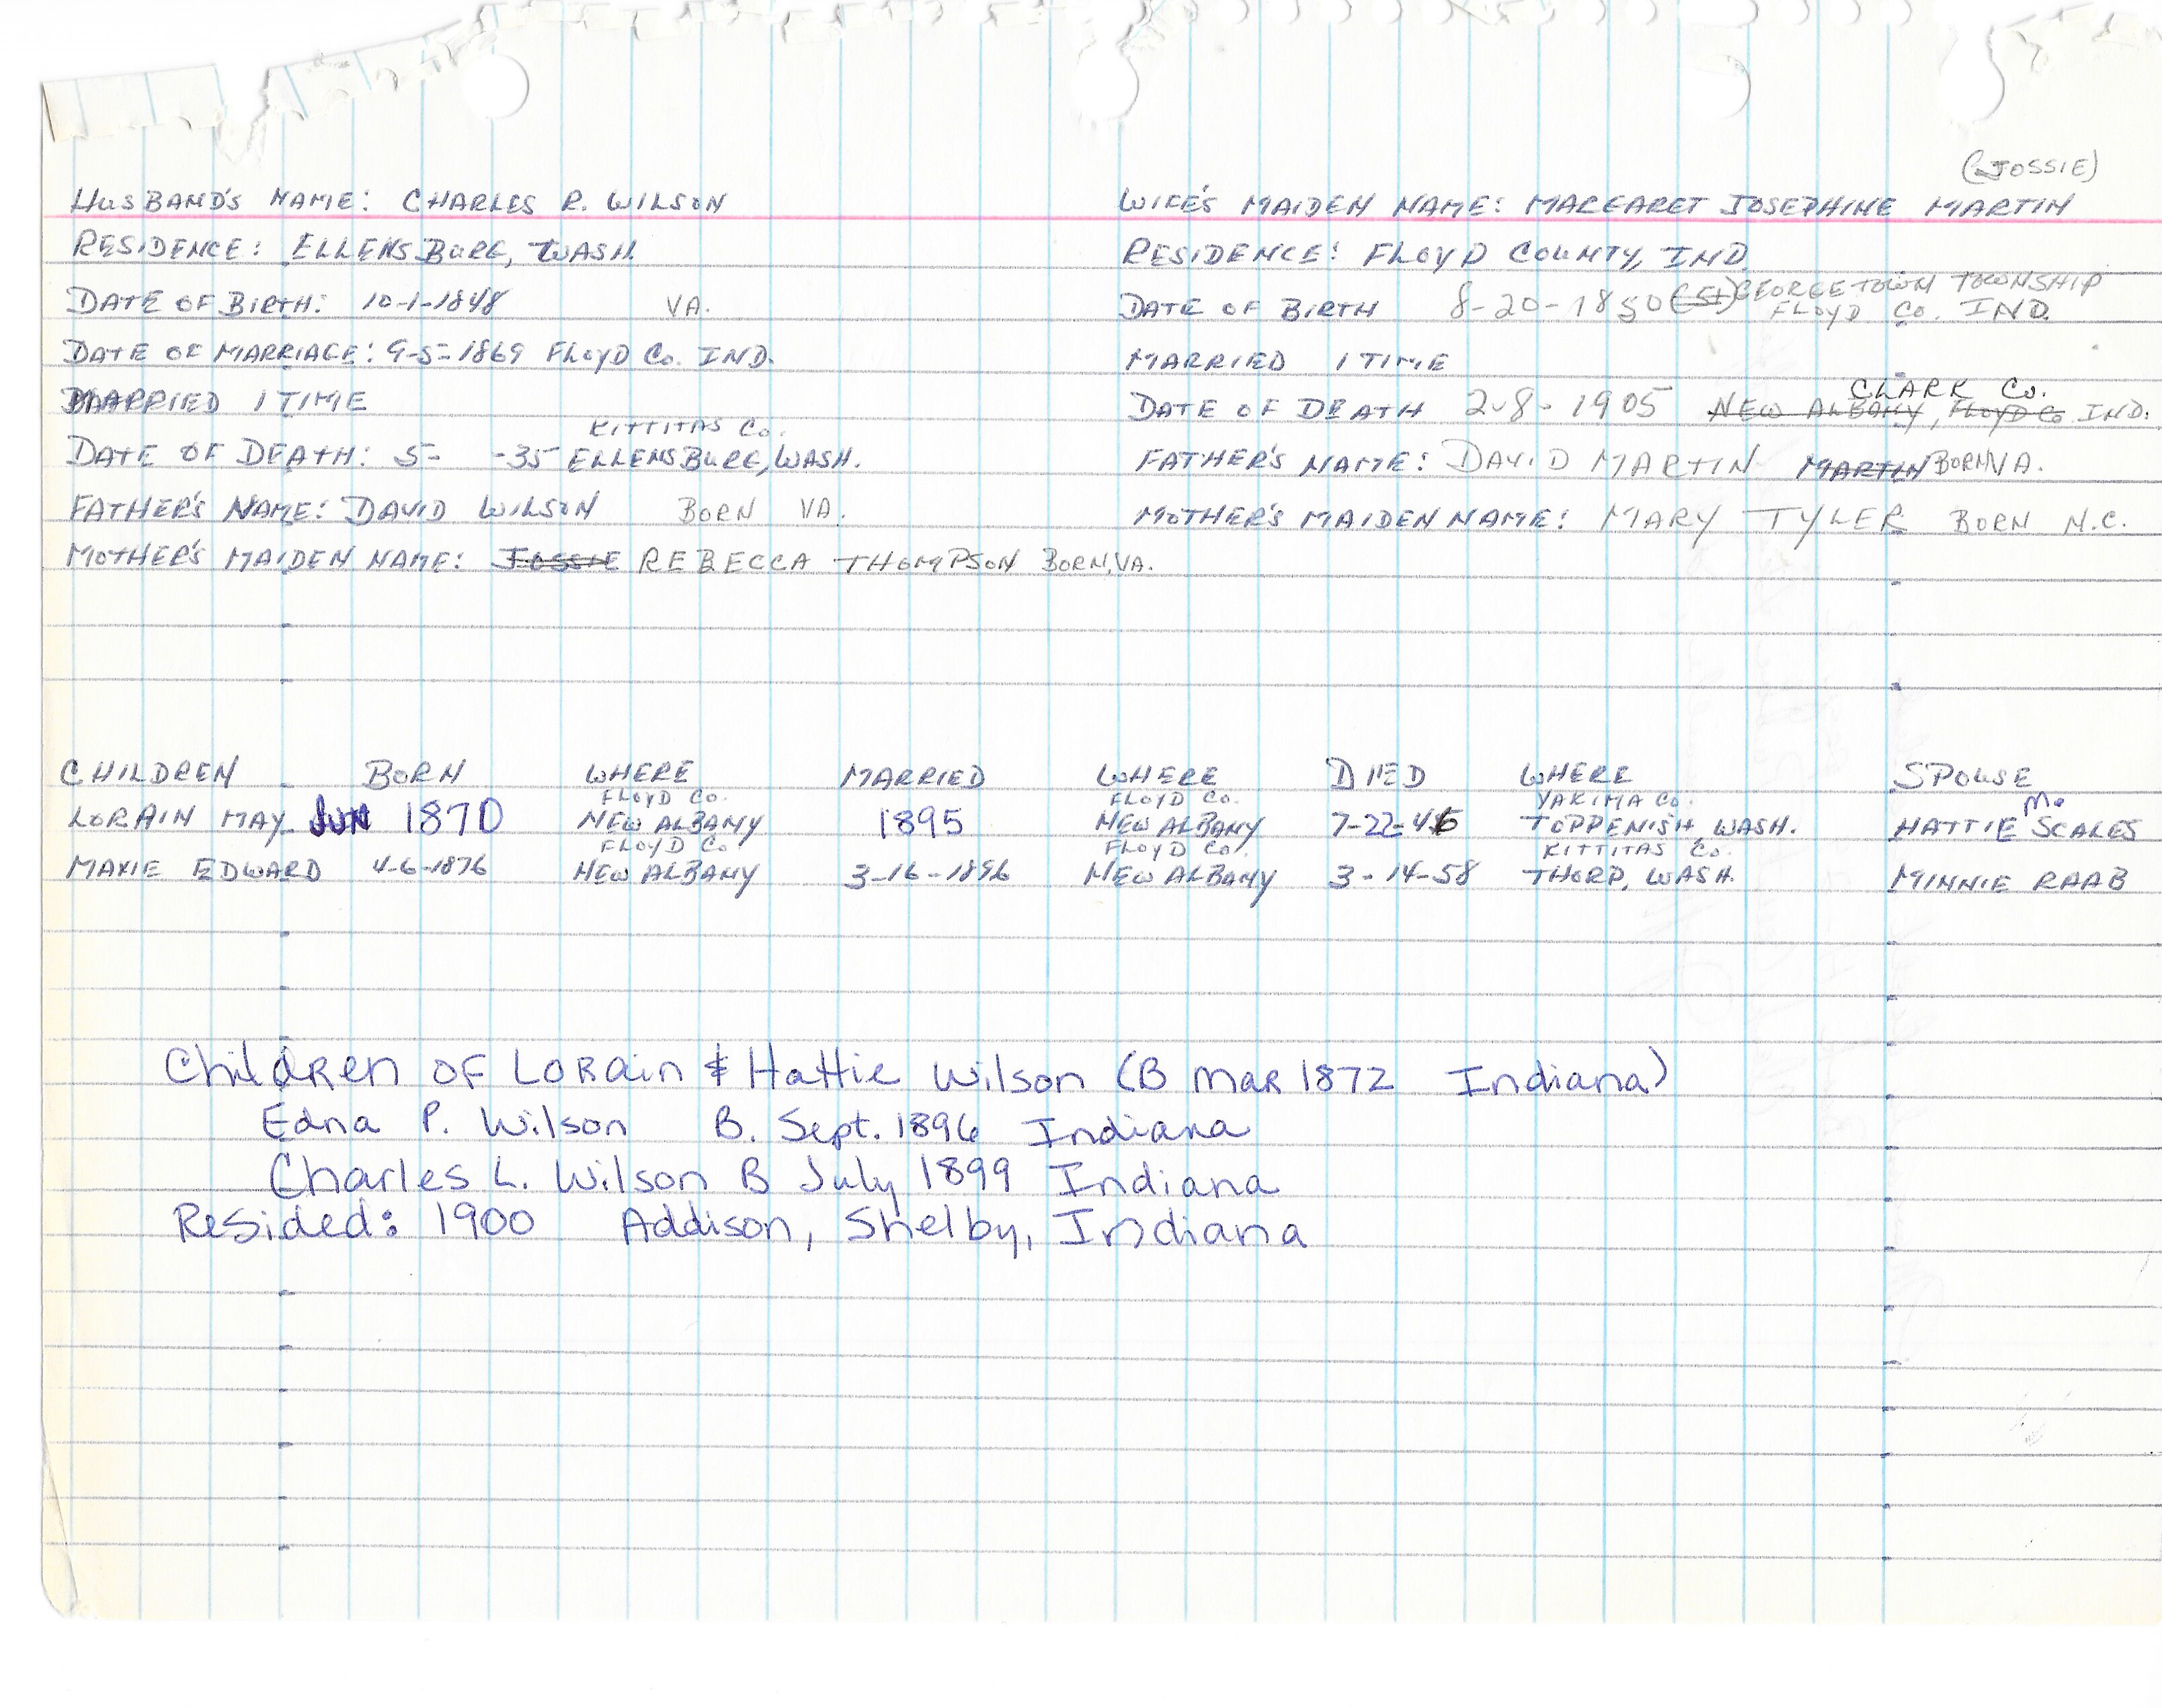 (JOSSIE)
HUSBAND'S NAME: CHARLES R. WILSON WIFE'S MAIDEN NAME: MARGARET JOSEPHINE MARTIN
RESIDENCE: ELLENSBURG, WASH. RESIDENCE: FLOYD COUNTY, IND.
DATE OF BIRTH: 10-1-1848 VA. DATE OF BIRTH 8-20-1850 (51) GEORGETOWN TOWNSHIP
FLOYD CO. IND.
DATE OF MARRIAGE: 9-5-1869 FLOYD CO. IND. MARRIED 1 TIME
MARRIED 1 TIME
CLARK CO.
DATE OF DEATH 2-8-1905 NEW ALBANY, FLOYD CO IND.
KITTITAS CO.
DATE OF DEATH: 5- -35 ELLENSBURG, WASH. FATHER'S NAME: DAVID MARTIN MARTIN BORN VA.
FATHER'S NAME: DAVID WILSON BORN VA. MOTHER'S MAIDEN NAME: MARY TYLER BORN N.C.
MOTHER'S MAIDEN NAME: JOSSIE REBECCA THOMPSON BORN, VA.
CHILDREN BORN WHERE MARRIED WHERE DIED WHERE SPOUSE
FLOYD CO. FLOYD CO. YAKIMA CO. M.
LORAIN MAY JUN 1870 NEW ALBANY 1895 NEW ALBANY 7-22-46 TOPPENISH, WASH. HATTIE SCALES
FLOYD CO FLOYD CO. KITTITAS CO.
MAXIE EDWARD 4-6-1876 NEW ALBANY 3-16-1896 NEW ALBANY 3-14-58 THORP, WASH. MINNIE RAAB
Children OF LORain & Hattie Wilson (B MAR 1872 Indiana)
Edna P. Wilson B. Sept. 1896 Indiana
Charles L. Wilson B July 1899 Indiana
Resided: 1900 Addison, Shelby, Indiana